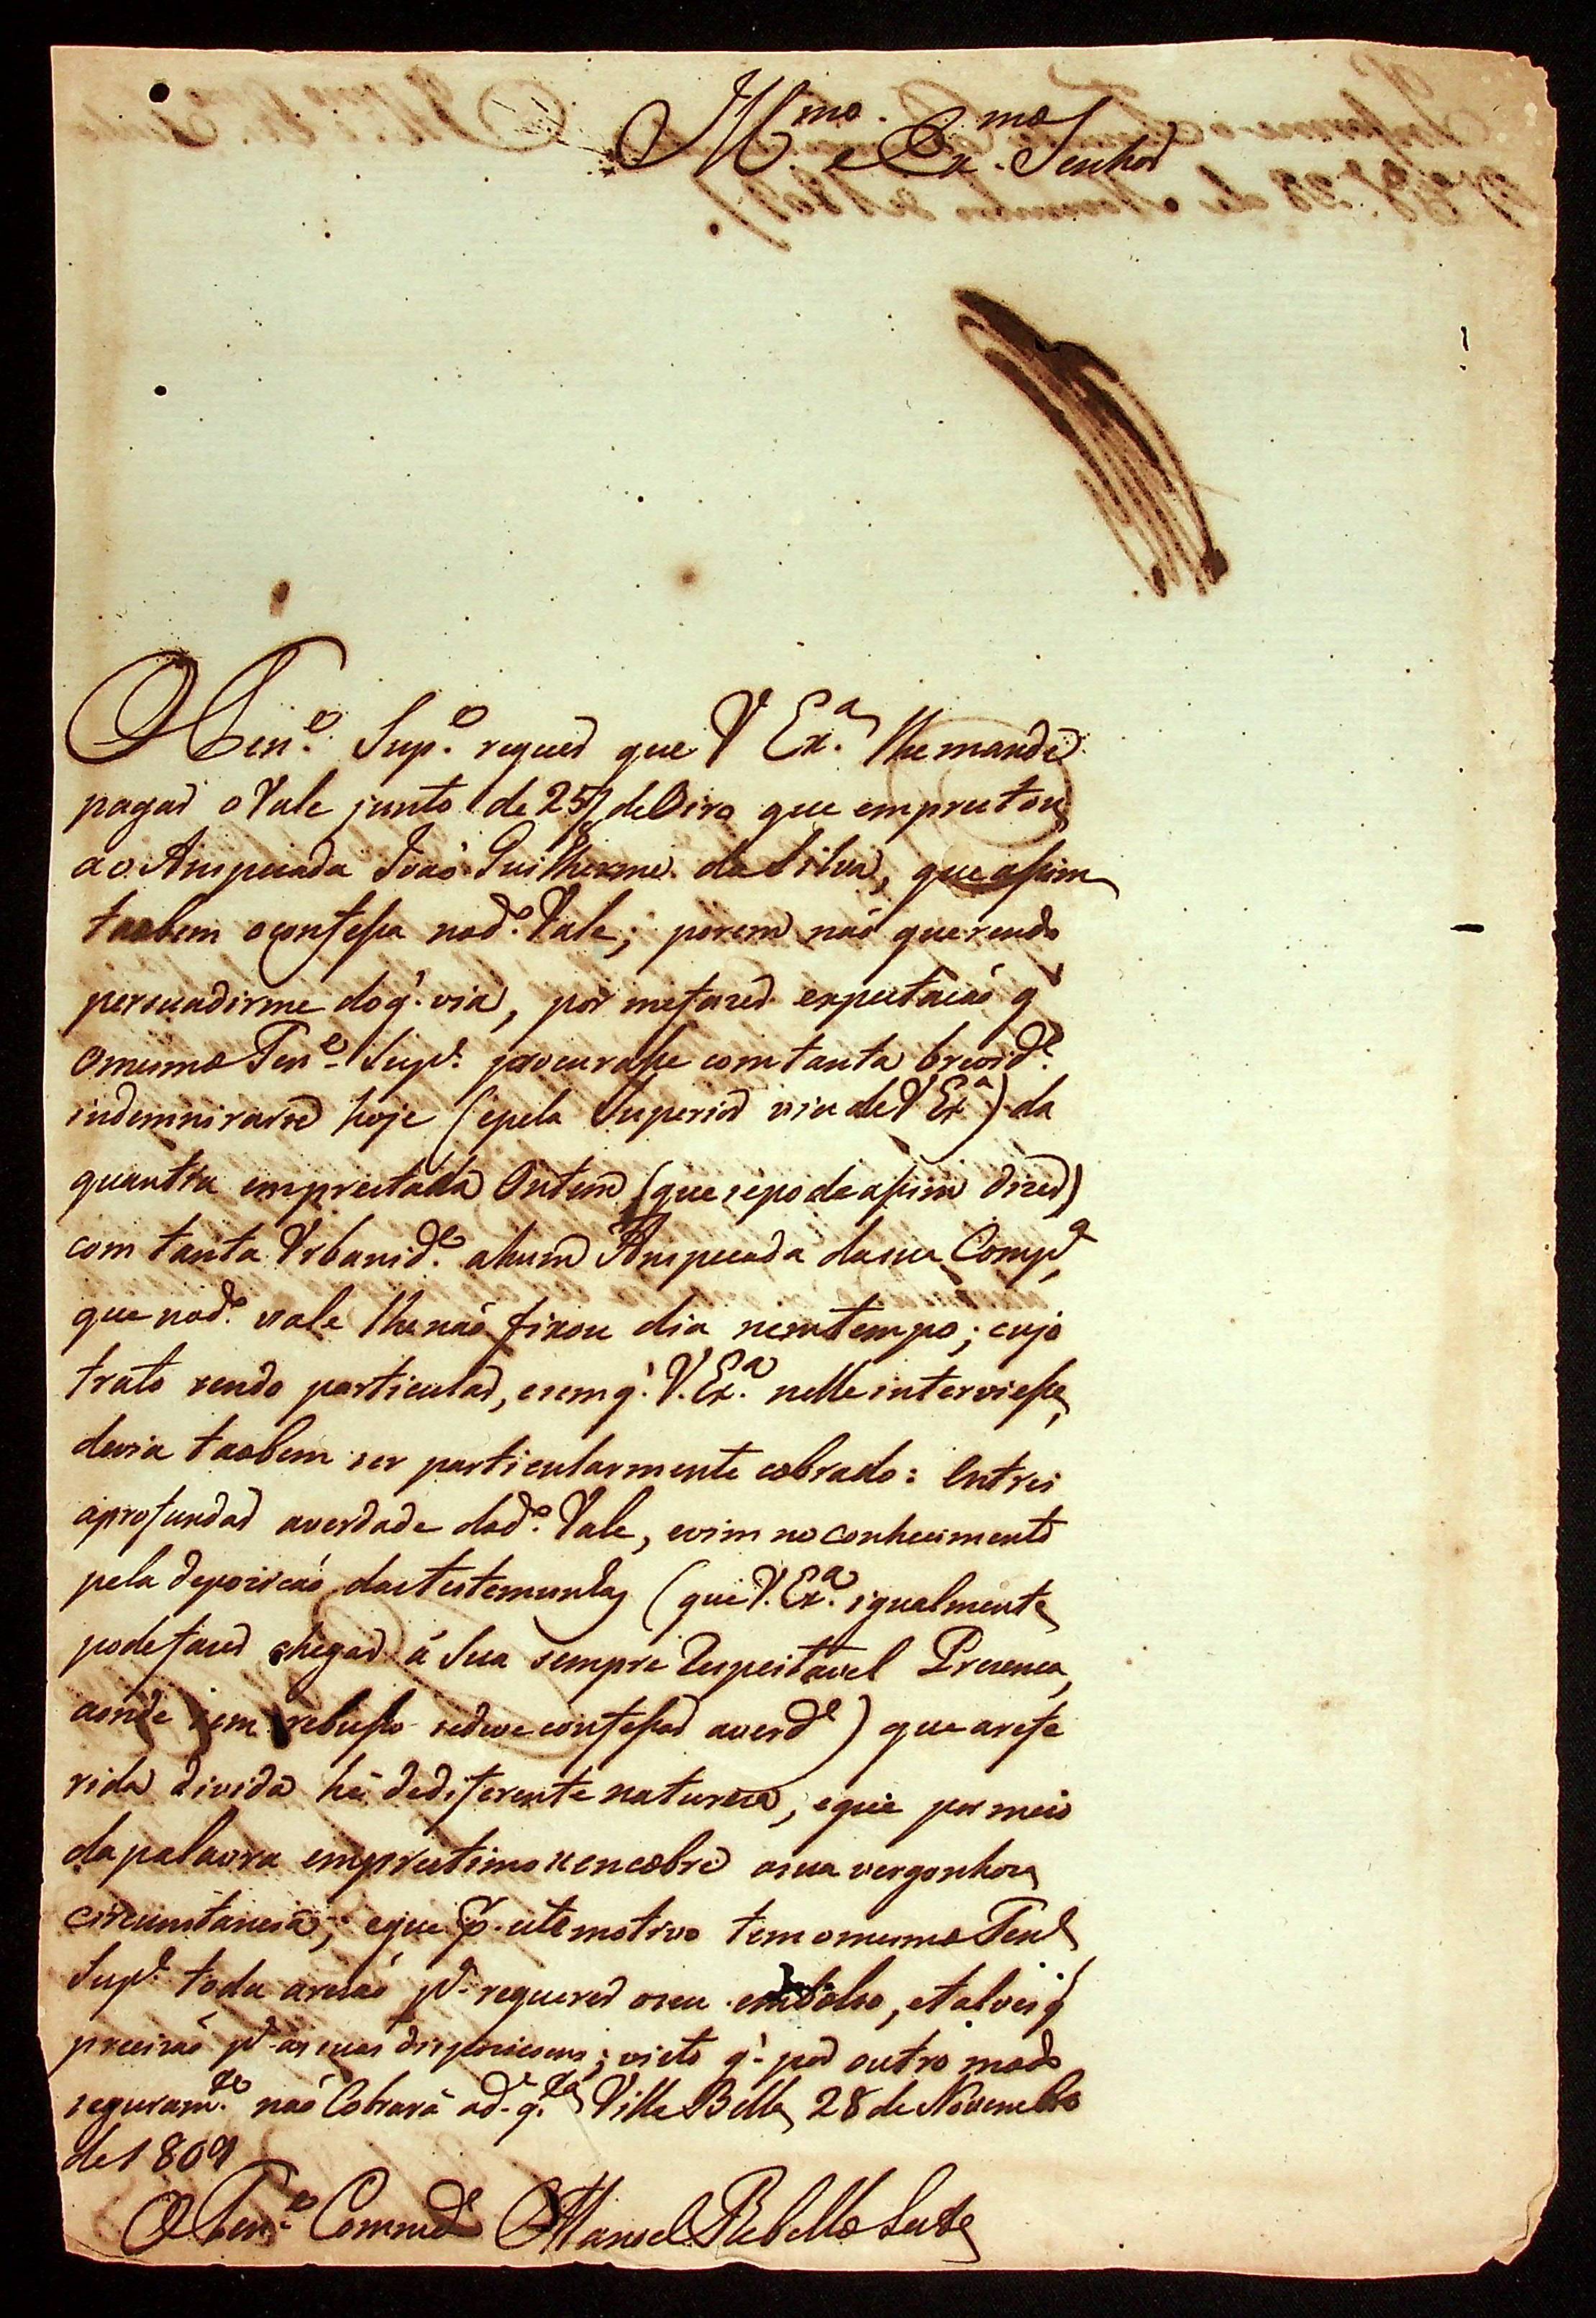 Ill.mo e Ex.mo Senhor
O Ten.e Sup.e requer que V Ex.a lhe mande
pagar o Vale junto de 25/8 de Oiro que emprestou
ao Anspeçada João Guilherme da Silva, que assim
taobem o confessa no d.o Vale; porem não querendo
persuadirme do q. via, por me fazer expectação q
o mesmo Ten.e Sup.e procurasse com tanta brevid.e
indemnizarse hoje (e pela Superior via de V Ex.a) da
quantia emprestada Ontem (que se pode assim dizer)
com tanta Urbanid.e a hum Anspeçada da sua Comp.a,
que no d.o vale lhe não fixou dia nem tempo; cujo
trato sendo particular, e sem q. V. Ex.a nelle interviesse,
devia taobem ser particularmente cobrado: Entrei
aprofundar a verdade do d.o Vale, e vim no conhecimento
pela depozição das testemunhas (que V. Ex.a igualmente
pode fazer chegar á Sua sempre Respeitavel Prezença,
aonde sem rebusso se deve confessar a verd.e) que a refe
rida divida hé de diferente natureza, e que por meio
da palavra emprestimo se encobre a sua vergonhoza
circunstancia; e que p. este motivo tem o mesmo Ten.e
Sup.e toda a rezão p.a requerer o seu embolso, e talves q
precizão p.a as suas dispozicoens; visto q. por outro modo
seguram.te não Cobrará a d.a q.ta Villa Bella 28 de Novembro
de 1809
O Ten.e Comm.de Manoel Rebello Leite